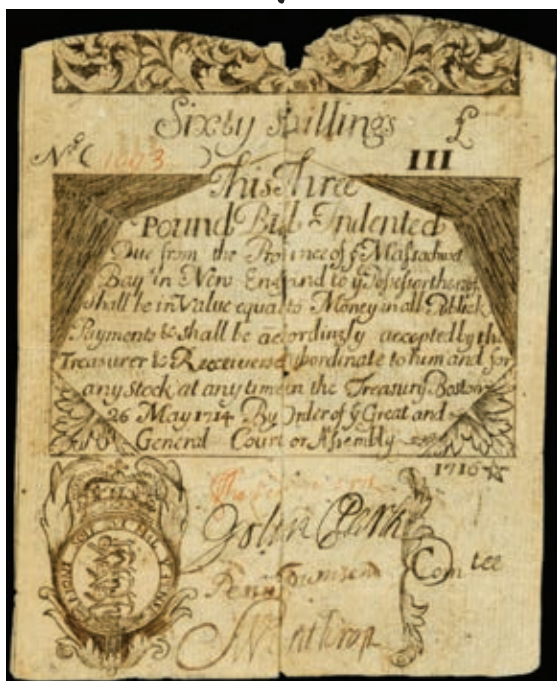 Sixty Shillings £
No ( 1093 ) III
This Three
Pound Bill Indented
Due from the Province of ye Massachuset
Bay in New England to ye Possessor thereof
shall be in Value equal to Money in all Publick
Payments & shall be accordingly accepted by the
Treasurer & Receivers subordinate to him and for
any Stock at any time in the Treasury Boston
26 May 1714 By Order of ye Great and
General Court or Assembly
1716
John Clark
Penn Townsend
Comtee
Winthrop
HONI SOIT QUI MAL Y PENSE